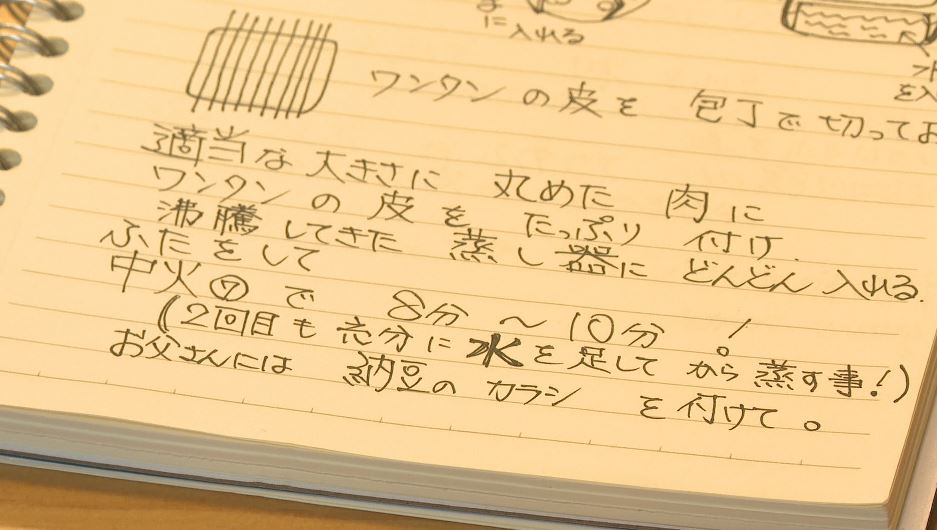 に入れる
ワンタンの皮を 包丁で切ってお
適当な大きさに 丸めた 肉に
ワンタンの皮を たっぷり 付け、
沸騰してきた 蒸し器に どんどん入れる.
ふたをして
中火⑦で 8分〜10分!。
(2回目も充分に水を足してから蒸す事!)
お父さんには 納豆のカラシ を付けて。